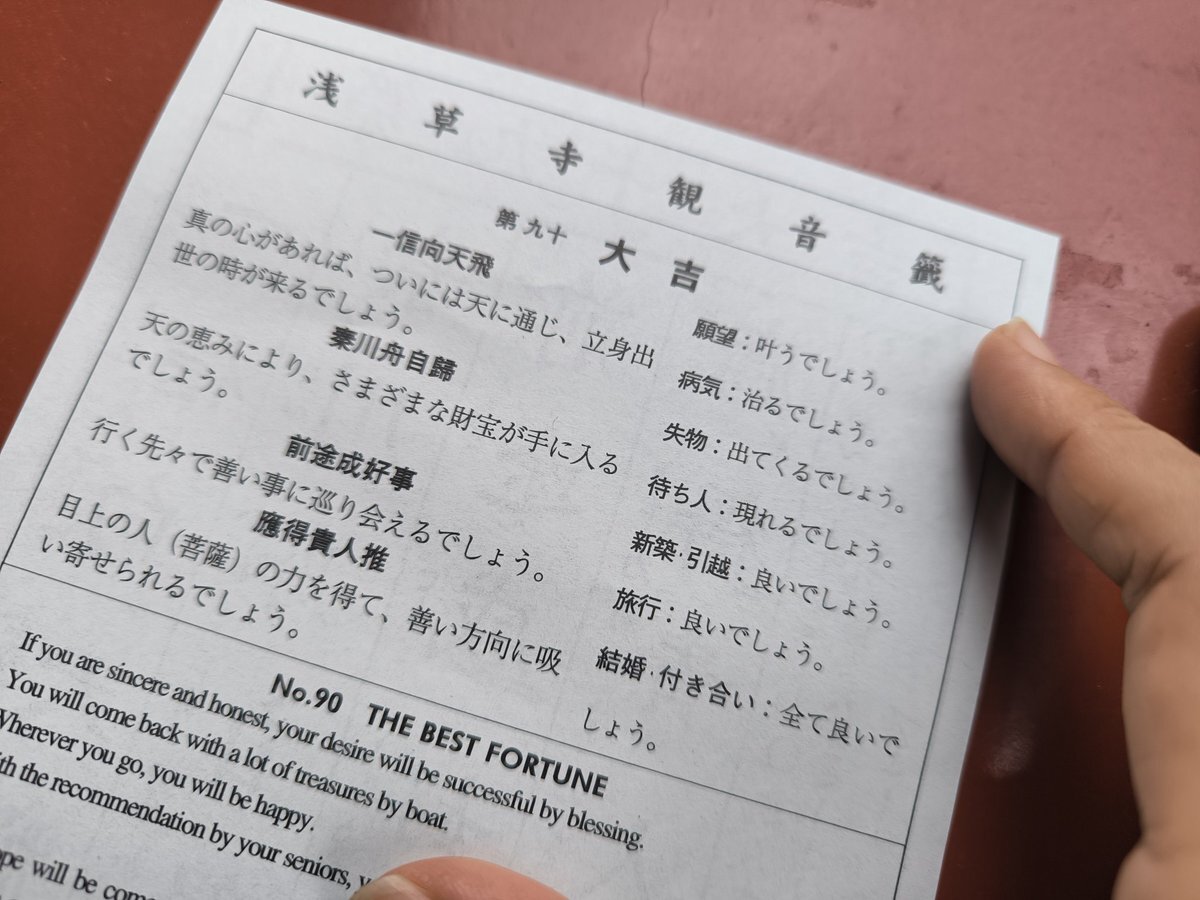 浅草寺観音籤
第九十 大吉
一信向天飛
真の心があれば、ついには天に通じ、立身出
世の時が来るでしょう。
秦川舟自歸
天の恵みにより、さまざまな財宝が手に入る
でしょう。
前途成好事
行く先々で善い事に巡り会えるでしょう。
應得貴人推
目上の人（菩薩）の力を得て、善い方向に吸
い寄せられるでしょう。
願望：叶うでしょう。
病気：治るでしょう。
失物：出てくるでしょう。
待ち人：現れるでしょう。
新築·引越：良いでしょう。
旅行：良いでしょう。
結婚·付き合い：全て良いで
しょう。
No.90 THE BEST FORTUNE
If you are sincere and honest, your desire will be successful by blessing.
You will come back with a lot of treasures by boat.
Wherever you go, you will be happy.
the recommendation by your seniors,
will be